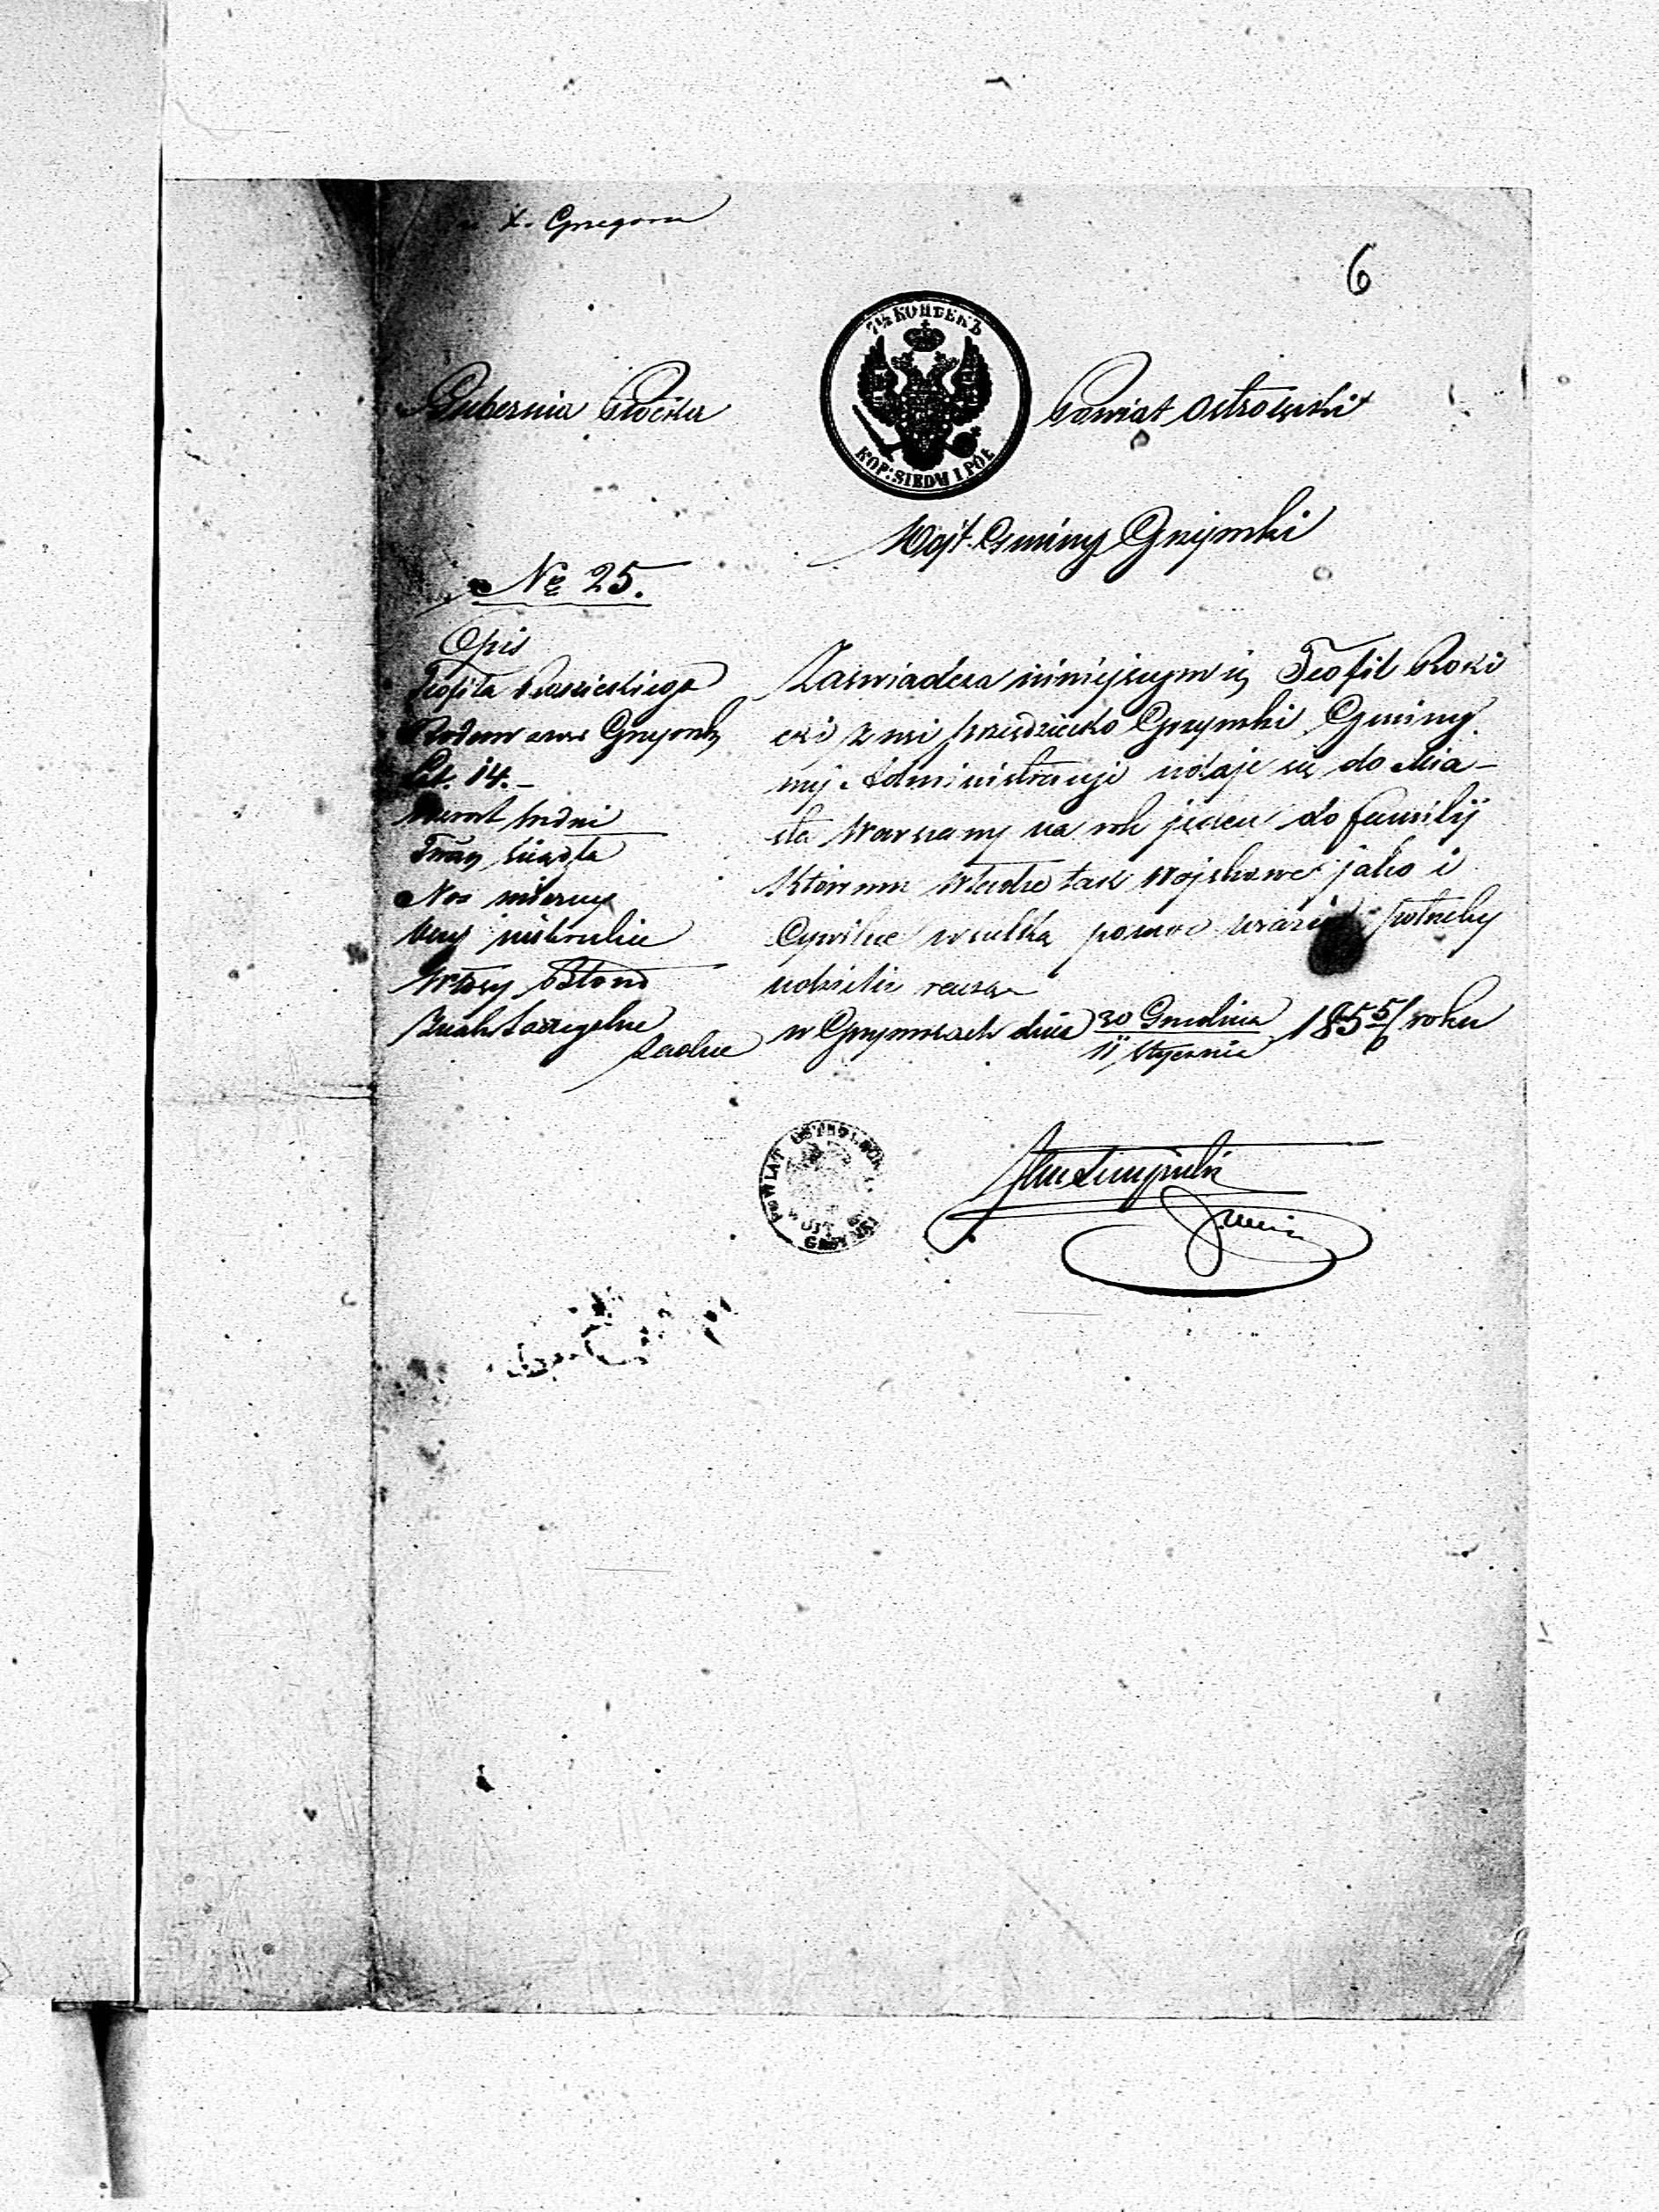 X. Grzegorz
6
7½ КОПѢЕКЪ
KOP: SIEDM I PÓŁ
Gubernia Płocka
Powiat Ostrołęcki
Wójt Gminy Grzymki
№ 25.
Opis
Teofila
Rodem z wsi Grzymki
Lat. 14.-
Wzrost średni
Twarz ściągła
Nos mierny
Oczy niebieskie
Włosy Blond
Znaki szczególne
żadne
Zaświadcza niniejszym iż Teofil Roki
cki z wsi Przezdziecko Grzymki Gminy
mej Administracyi udaje się do Mia-
sta Warszawy na rok jeden do familij
Któremu Władze tak Wojskowe jako i
Cywilne wszelką pomoc w razie potrzeby
udzielić raczą
w Grzymkach dnia 30 Grudnia 1855/6 roku
11 Stycznia
POWIAT OSTROŁĘCK
WÓJT GM